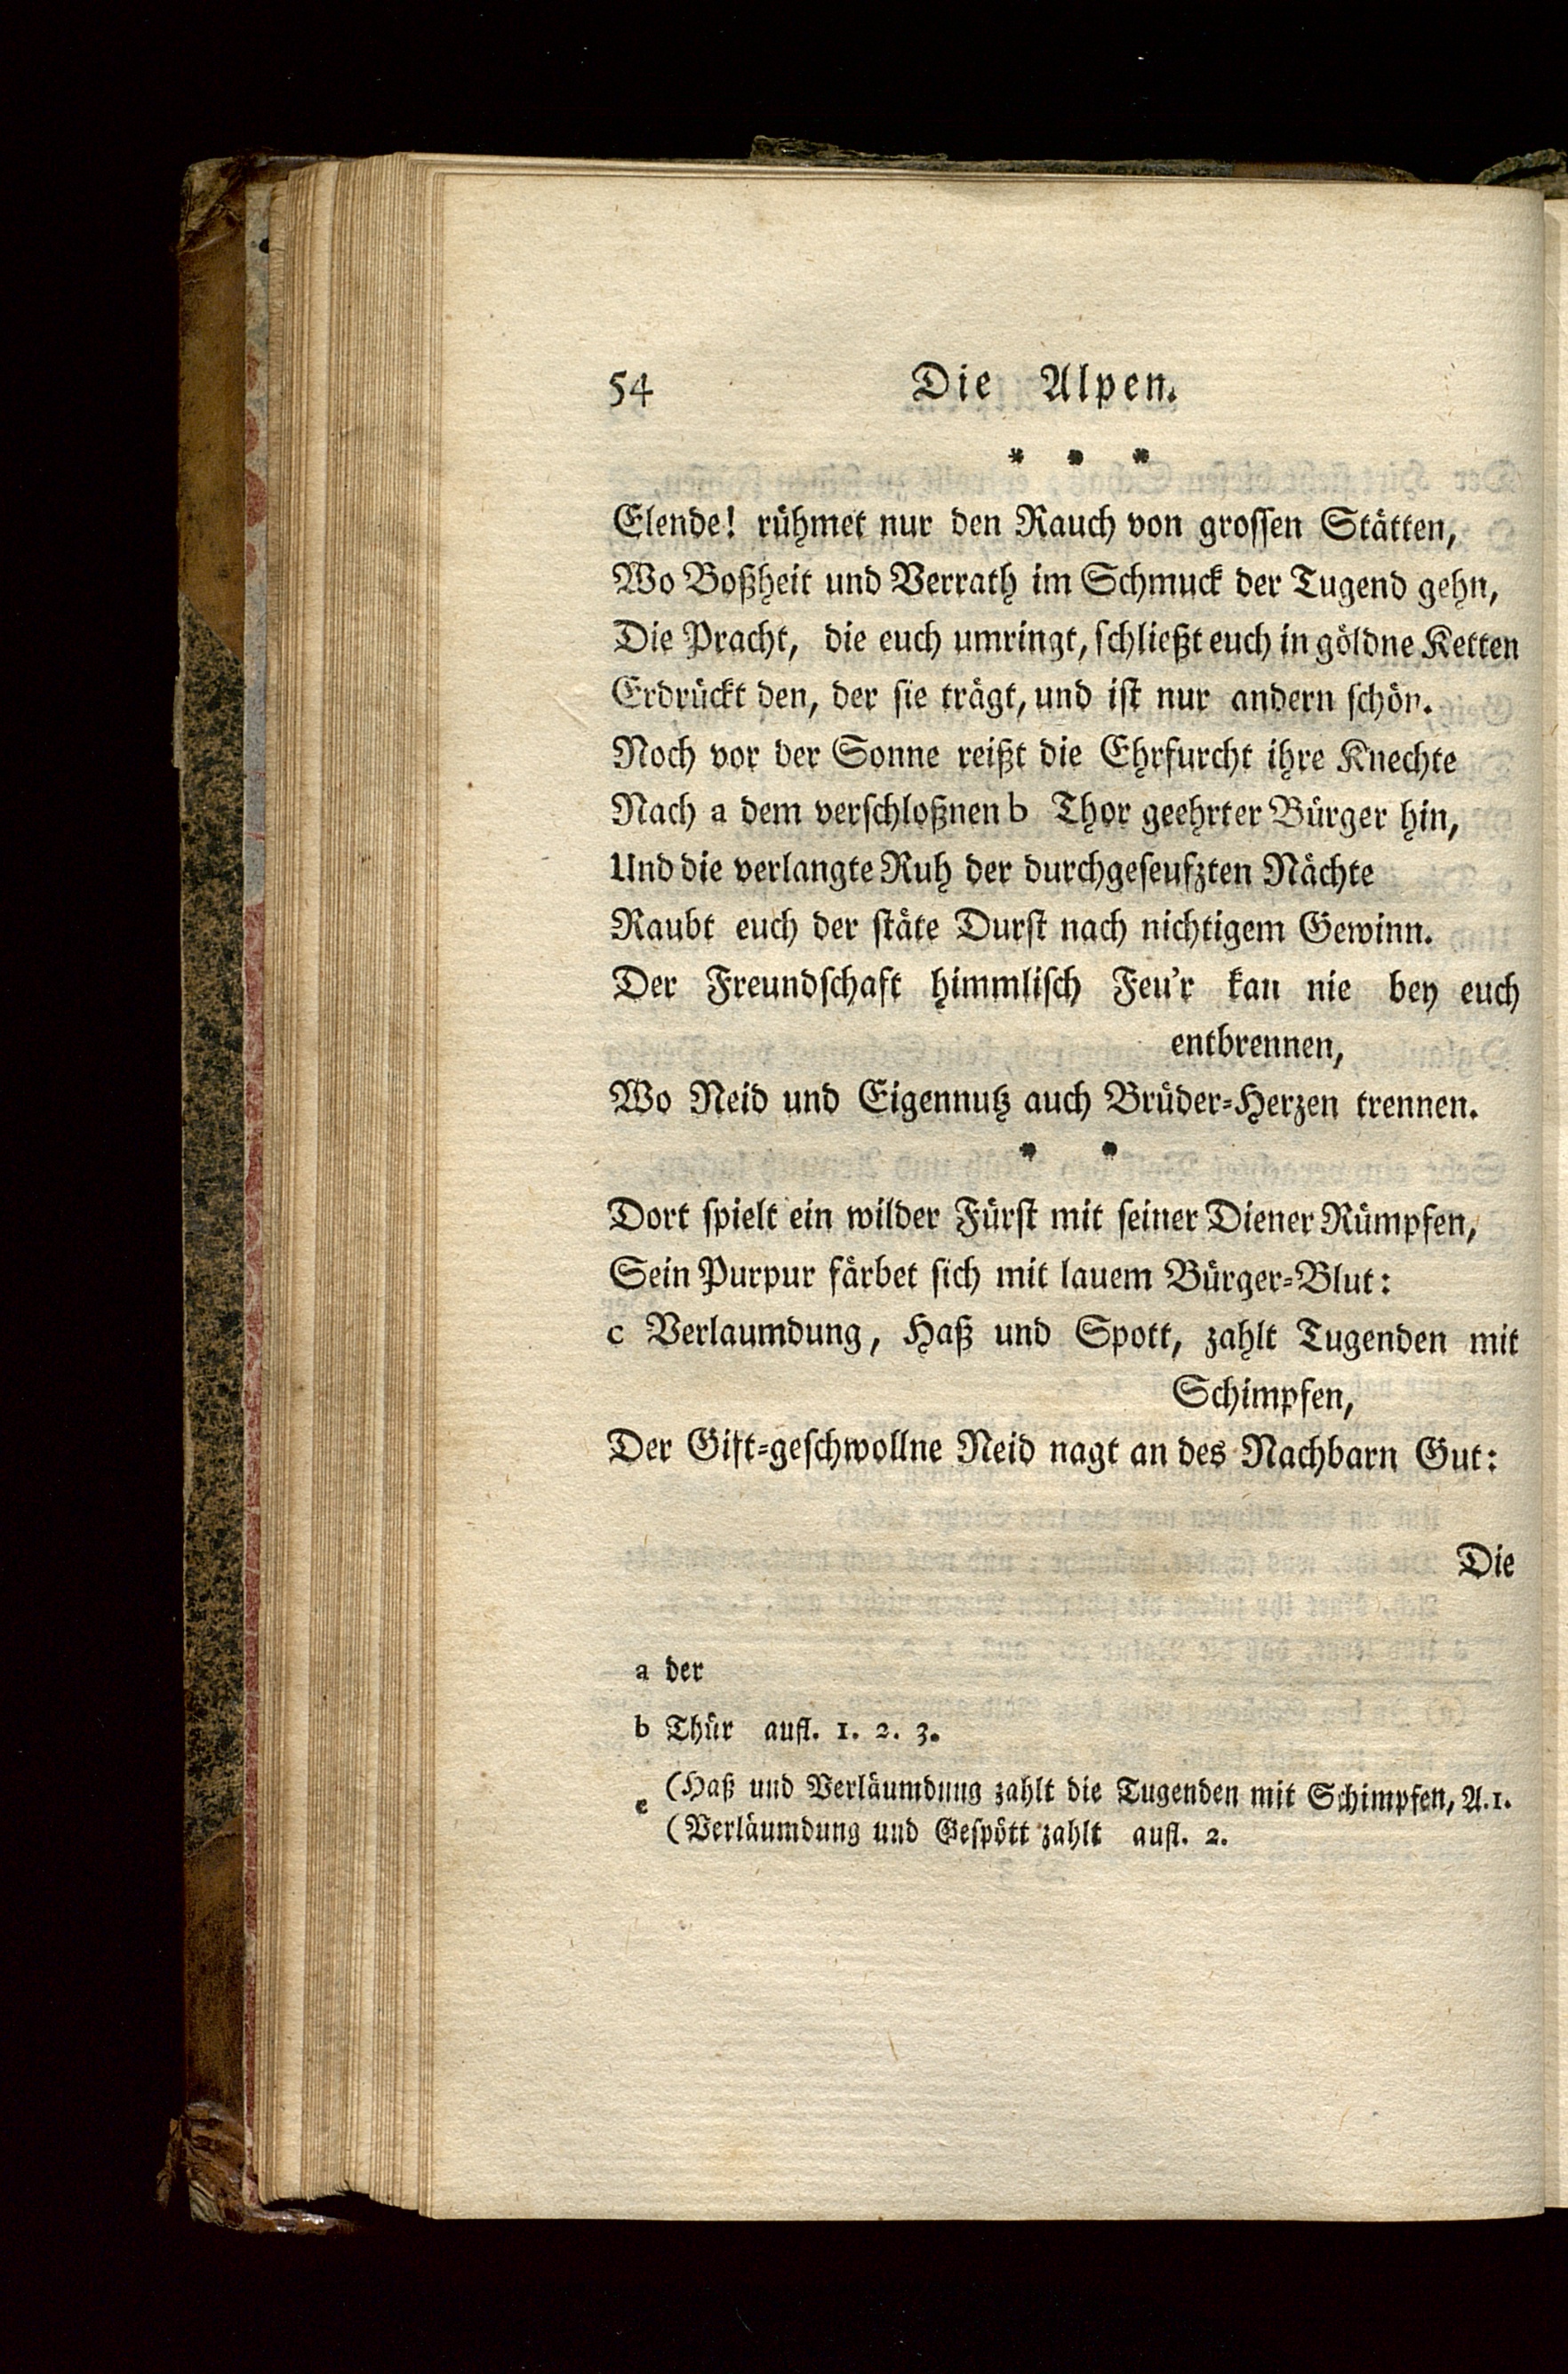 54 Die Alpen.
* * *
Elende! rühmet nur den Rauch von grossen Stätten,
Wo Boßheit und Verrath im Schmuck der Tugend gehn,
Die Pracht, die euch umringt, schließt euch in göldne Ketten
Erdrückt den, der sie trägt, und ist nur andern schön.
Noch vor der Sonne reißt die Ehrfurcht ihre Knechte
Nach a dem verschloßnen b Thor geehrter Bürger hin,
Und die verlangte Ruh der durchgeseufzten Nächte
Raubt euch der stäte Durst nach nichtigem Gewinn.
Der Freundschaft himmlisch Feu'r kan nie bey euch
entbrennen,
Wo Neid und Eigennutz auch Brüder-Herzen trennen.
* *
Dort spielt ein wilder Fürst mit seiner Diener Rümpfen,
Sein Purpur färbet sich mit lauem Bürger-Blut:
c Verlaumdung, Haß und Spott, zahlt Tugenden mit
Schimpfen,
Der Gift-geschwollne Neid nagt an des Nachbarn Gut:
Die
a der
b Thür aufl. 1. 2. 3.
c (Haß und Verläumdung zahlt die Tugenden mit Schimpfen, A. 1.
(Verläumdung und Gespött zahlt aufl. 2.